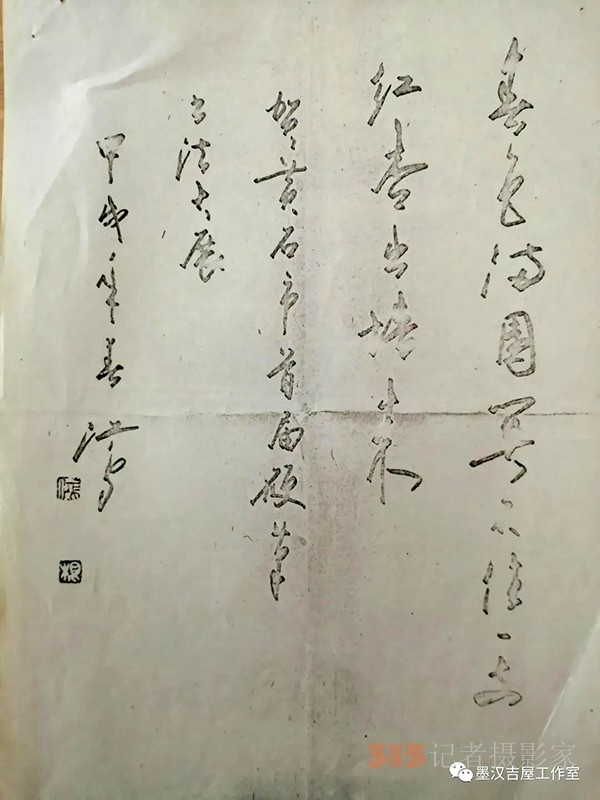 春色满园關不住一
红杏出墙来
贺黄石市首届硬笔
书法大展
甲戌年春
315记者摄影家
墨汉吉屋工作室